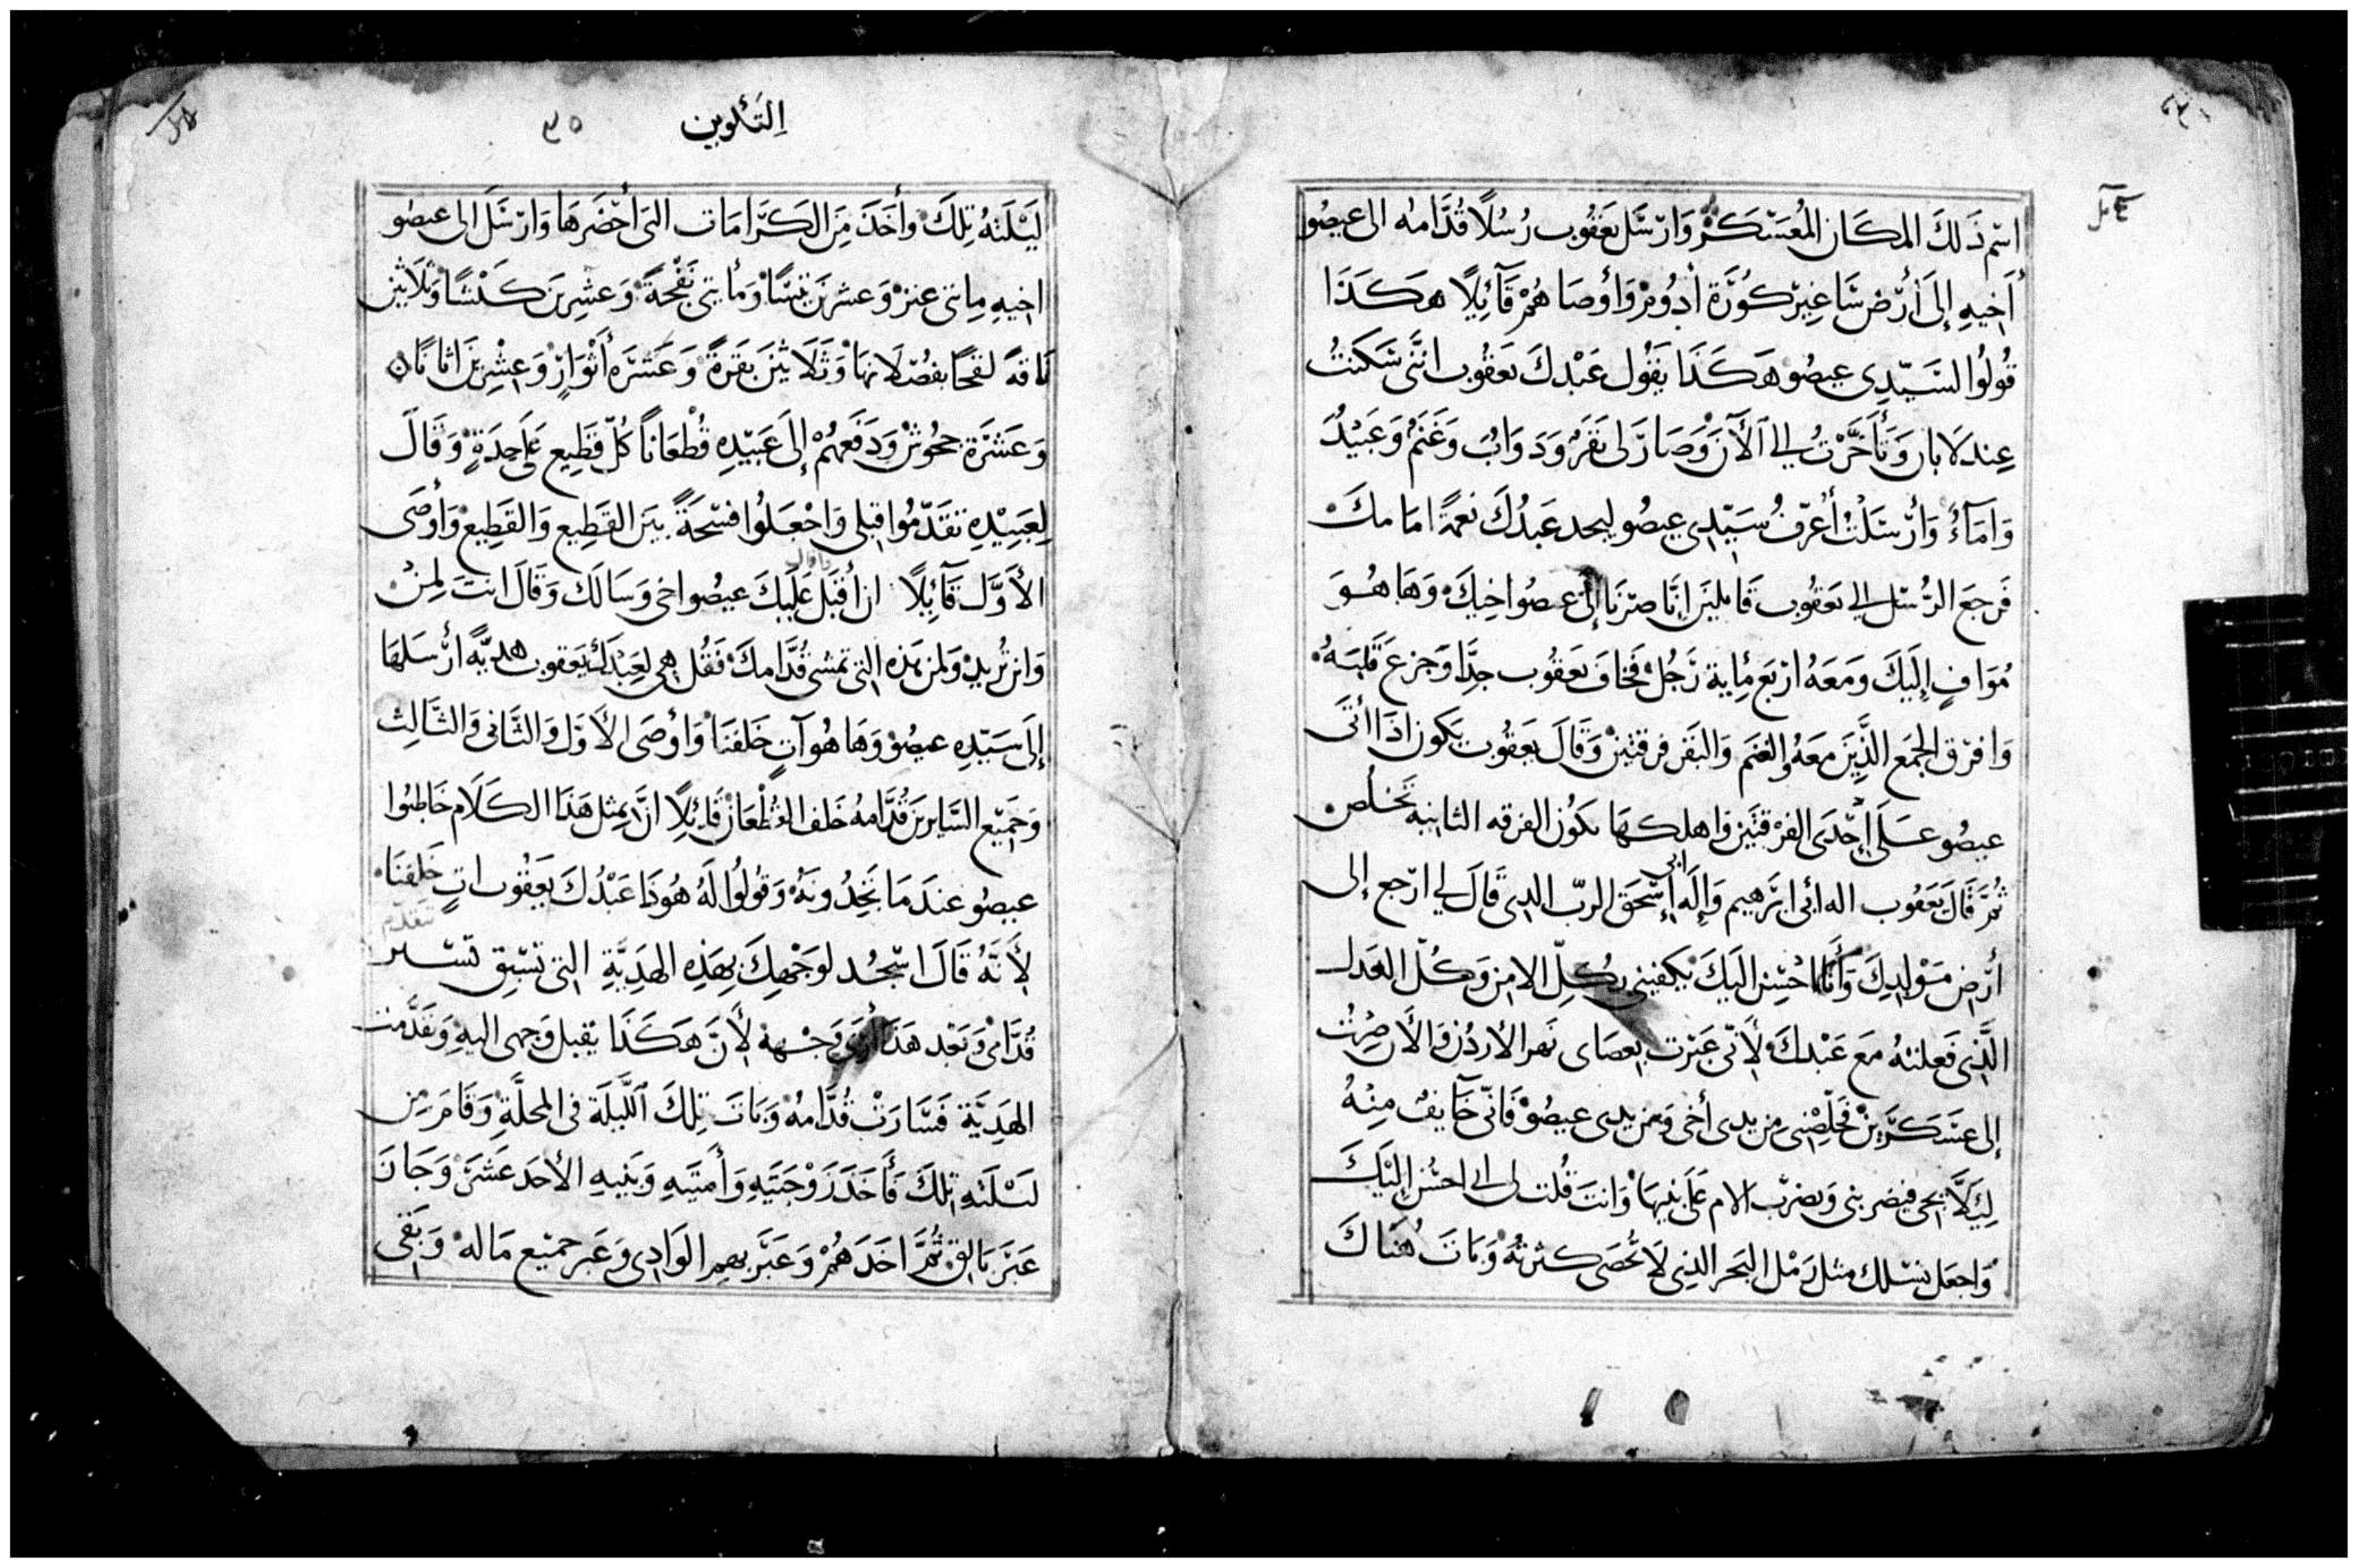 اسْم ذَلكَ المكَان المُعَسْكَرْ وَارْسَل يَعقُوب رُسُلًا قُدَّامهُ الى عيصُو
أَخِيهِ إِلَى أَرْض سَاعِير كُورَة أدُومْ وَأوصَاهُمْ قَآئِلًا هَكَذَا
قُولُوا لسَيّدِى عيصُو هَكَذَا يَقُول عَبْدكَ يَعقُوب انَّنى سَكَنتُ
عِند لَابان وَتَأَخَّرْتُ الى اَلْآنَ وَصَارَ لى بَقَرْ وَدَوَابْ وَغَنَمْ وَعَبيْدُ
وَامَآءٌ وَأرْسَلتْ أعْرّفُ سَيّدِى عيصُو ليجد عَبدُكَ نعمَةً امَامكَ
فَرجعَ الرُّسُل الى يَعقُوب قَايلينَ إنَّا صِرْنَا إلى عيصُو اخِيكَ وَهَا هُوَ
مُوَافٍ إلَيكَ وَمَعَهُ ارْبَع مِأية رَجُلْ فَخافَ يَعقُوب جدًّا وَجزعَ قَلبَهُ
وَافرَق الجمَع الذَّينَ مَعَهُ والغنَم وَالبَقر فرقتين وَقَالَ يعقُوب يَكون اذَا أتَى
عيصُو عَلَى إحْدَى الفرْقتَين وَاهلكهَا يَكوُن الفرقه الثانية تَخلُص
ثُمَّ قَالَ يَعَقُوب اله ابى ابرَهيم وَإلَه ابى إِسْحَق الربّ الدى قَالَ لي ارْجع إلى
أرْض مَوْلِدِكَ وَأنَا احُسِن اليَكَ يكفينى بِكُلّ الامن وَكُلّ العَدل
الَّذِى فَعلتهُ مَع عَبْدكَ لأَنّى عَبَرت بعصَاى نَهر الأردُن وَالأَن صِرْت
إلى عسْكَرَين فَخلّصْنى من يدى أخى ومن يدى عيصُو فَانّى خَآيف مِنْهُ
لِيَلّا يَجى فيضربنى وَيضرْب الام عَلَى بَنيهَا وَانتَ قُلت لى انى احسُن إليْكَ
وَاجعَل نسْلك مثل رَمْل البَحر الذى لَا تُحصَى كثرتُهُ وَبَاتَ هُنَاكَ
اِلتَكوين
٣٥
لَيْلَتهُ تِلكَ وأَخَذَ مِن الكَرَامَات التى أحْضَرهَا وَارْسَلَ الى عيصُو
اخيهِ مِايتى عنز وَعشرين تيسًا وَمأيتى نَعْجَةً وَعشِرِينَ كَبشًا وَثلَاثين
نَاقةً لقحًا بفُصْلَانهَا وَثَلَاثينَ بَقَرةً وَعَشَرَه أثْوَارٍ وَعِشْرِينَ اتانًا
وَعَشَرَة جحُوش وَدَفَعهُمْ إلَى عَبيّدِهِ قُطْعَاناً كُلّ قَطِيع عَلَى حِدَةٍ وَقَالَ
لِعَبيْدِهِ تقَدّمُوا قبلى وَاجْعَلوُا فسْحَةً بَينَ القَطِيع وَالقَطِيع وَأوصَى
الأَوَّل قَآئِلًا ان أقبَل عَلَيكَ عيصُو اخى وَسَالَك وَقَالَ انتَ لِمن
وَاين تُرِيد وَلمن هَذِه التى تمشى قُدَّامكَ فَقُل هِى لعَبْدكَ يَعقوب هديَّه أرْسَلهَا
إلَى سَيّدِه عيصُو وَهَا هُو آتٍ خَلفنَا وَأوْصَى الأَوّل وَالثَّانى وَالثَّالِث
وَجَمِيْع السَّايرينَ قُدَّامهُ خَلف القُطْعَان قَآئِلًا انَّ بمِثل هَذَا الكَلَام خَاطبوُا
عيصُو عندَ مَا تجِدُونهُ وَقوُلوُا لَهُ هُوَذَا عَبْدُكَ يَعقُوب اتٍ خَلفنَا
لأَنَّهُ قَالَ اسْجُد لوَجْهكَ بِهَذِه الهَدِيَّةِ التى تَسْبق تسْير تتقدّم
قُدَّامى وَبَعْد هَذَا أرَى وَجْههُ لأَنَّ هَكَذَا يقبل وَجهى اليهِ وَتقَدَّمت
الهَدِيَّة فَسَارَتْ قُدَّامهُ وَبَاتَ تِلكَ اَللَّيلَة فى المحلَّةِ وَقَامَ مِن
لَيْلَتهِ تِلكَ فَأَخَذَ زَوْجَتَيهِ وَأَمَتَيهِ وَبَنيهِ الأحدَ عَشَر وَجَازَ
عَبَر يَابقْ ثُمَّ اخَذَهُمْ وَعَبَر بهم الوَادِى وَعَبر جميْع مَاله وَبَقى